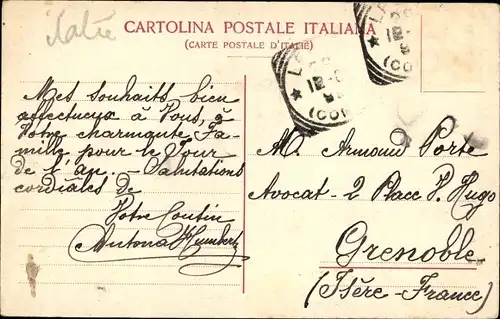 Italie
CARTOLINA POSTALE ITALIANA
(CARTE POSTALE D'ITALIE)
Mes souhaits bien
affectueux à Vous, à
Votre charmante Fa-
mille pour le Jour
de l'an. - Salutations
cordiales de
Votre Cousin
Humbert
M. Armand Porte
Avocat - 2 Place V. Hugo
Grenoble
(Isère - France)